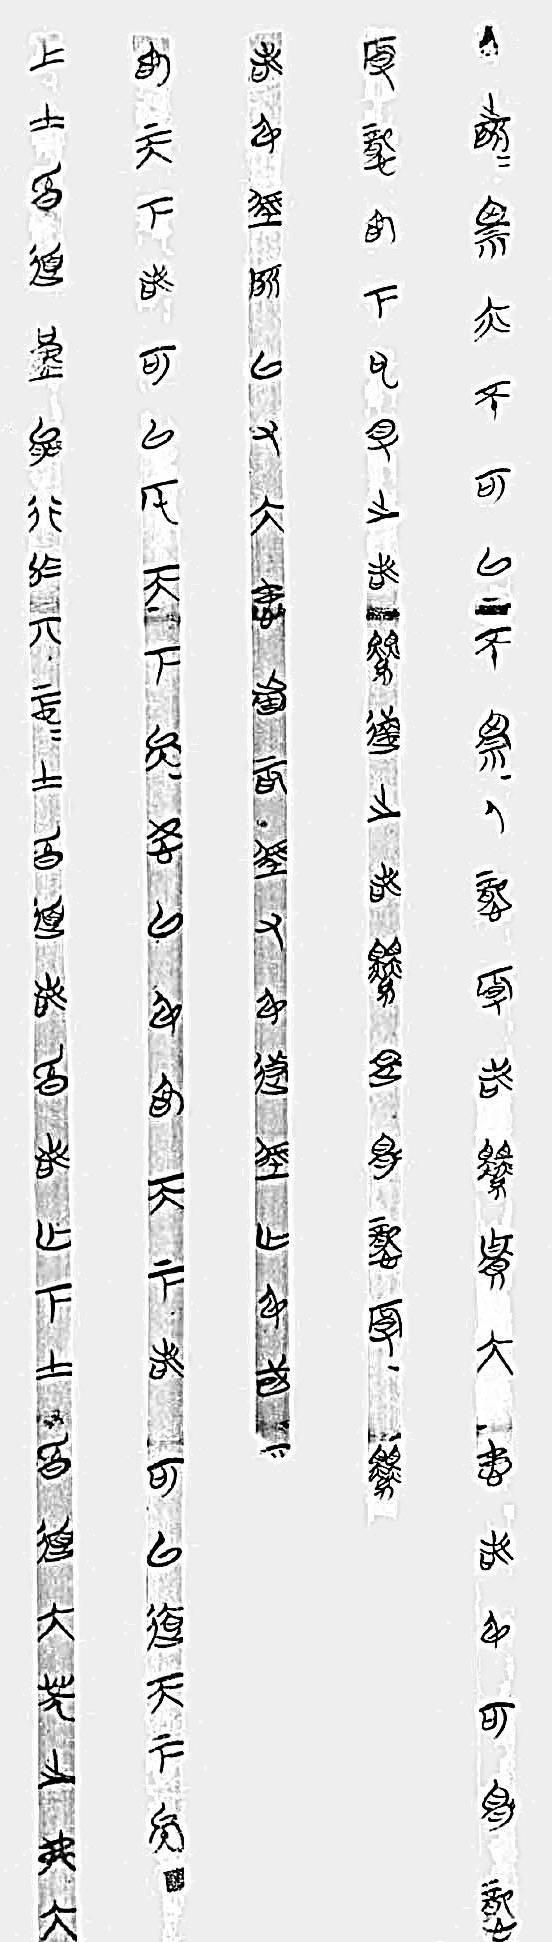 人之所畏亦不可以不畏人寵辱若纓貴大患若身可胃寵
辱寵為下也得之若纓失之若纓是胃寵辱纓
若身吾所以又大患者為吾又身返吾亡身或
為天下若可以厇天下矣㤅以身為天下若可以迲天下矣
上士昏道堇能行於其中士昏道若昏若亡下士昏道大笑之弗大